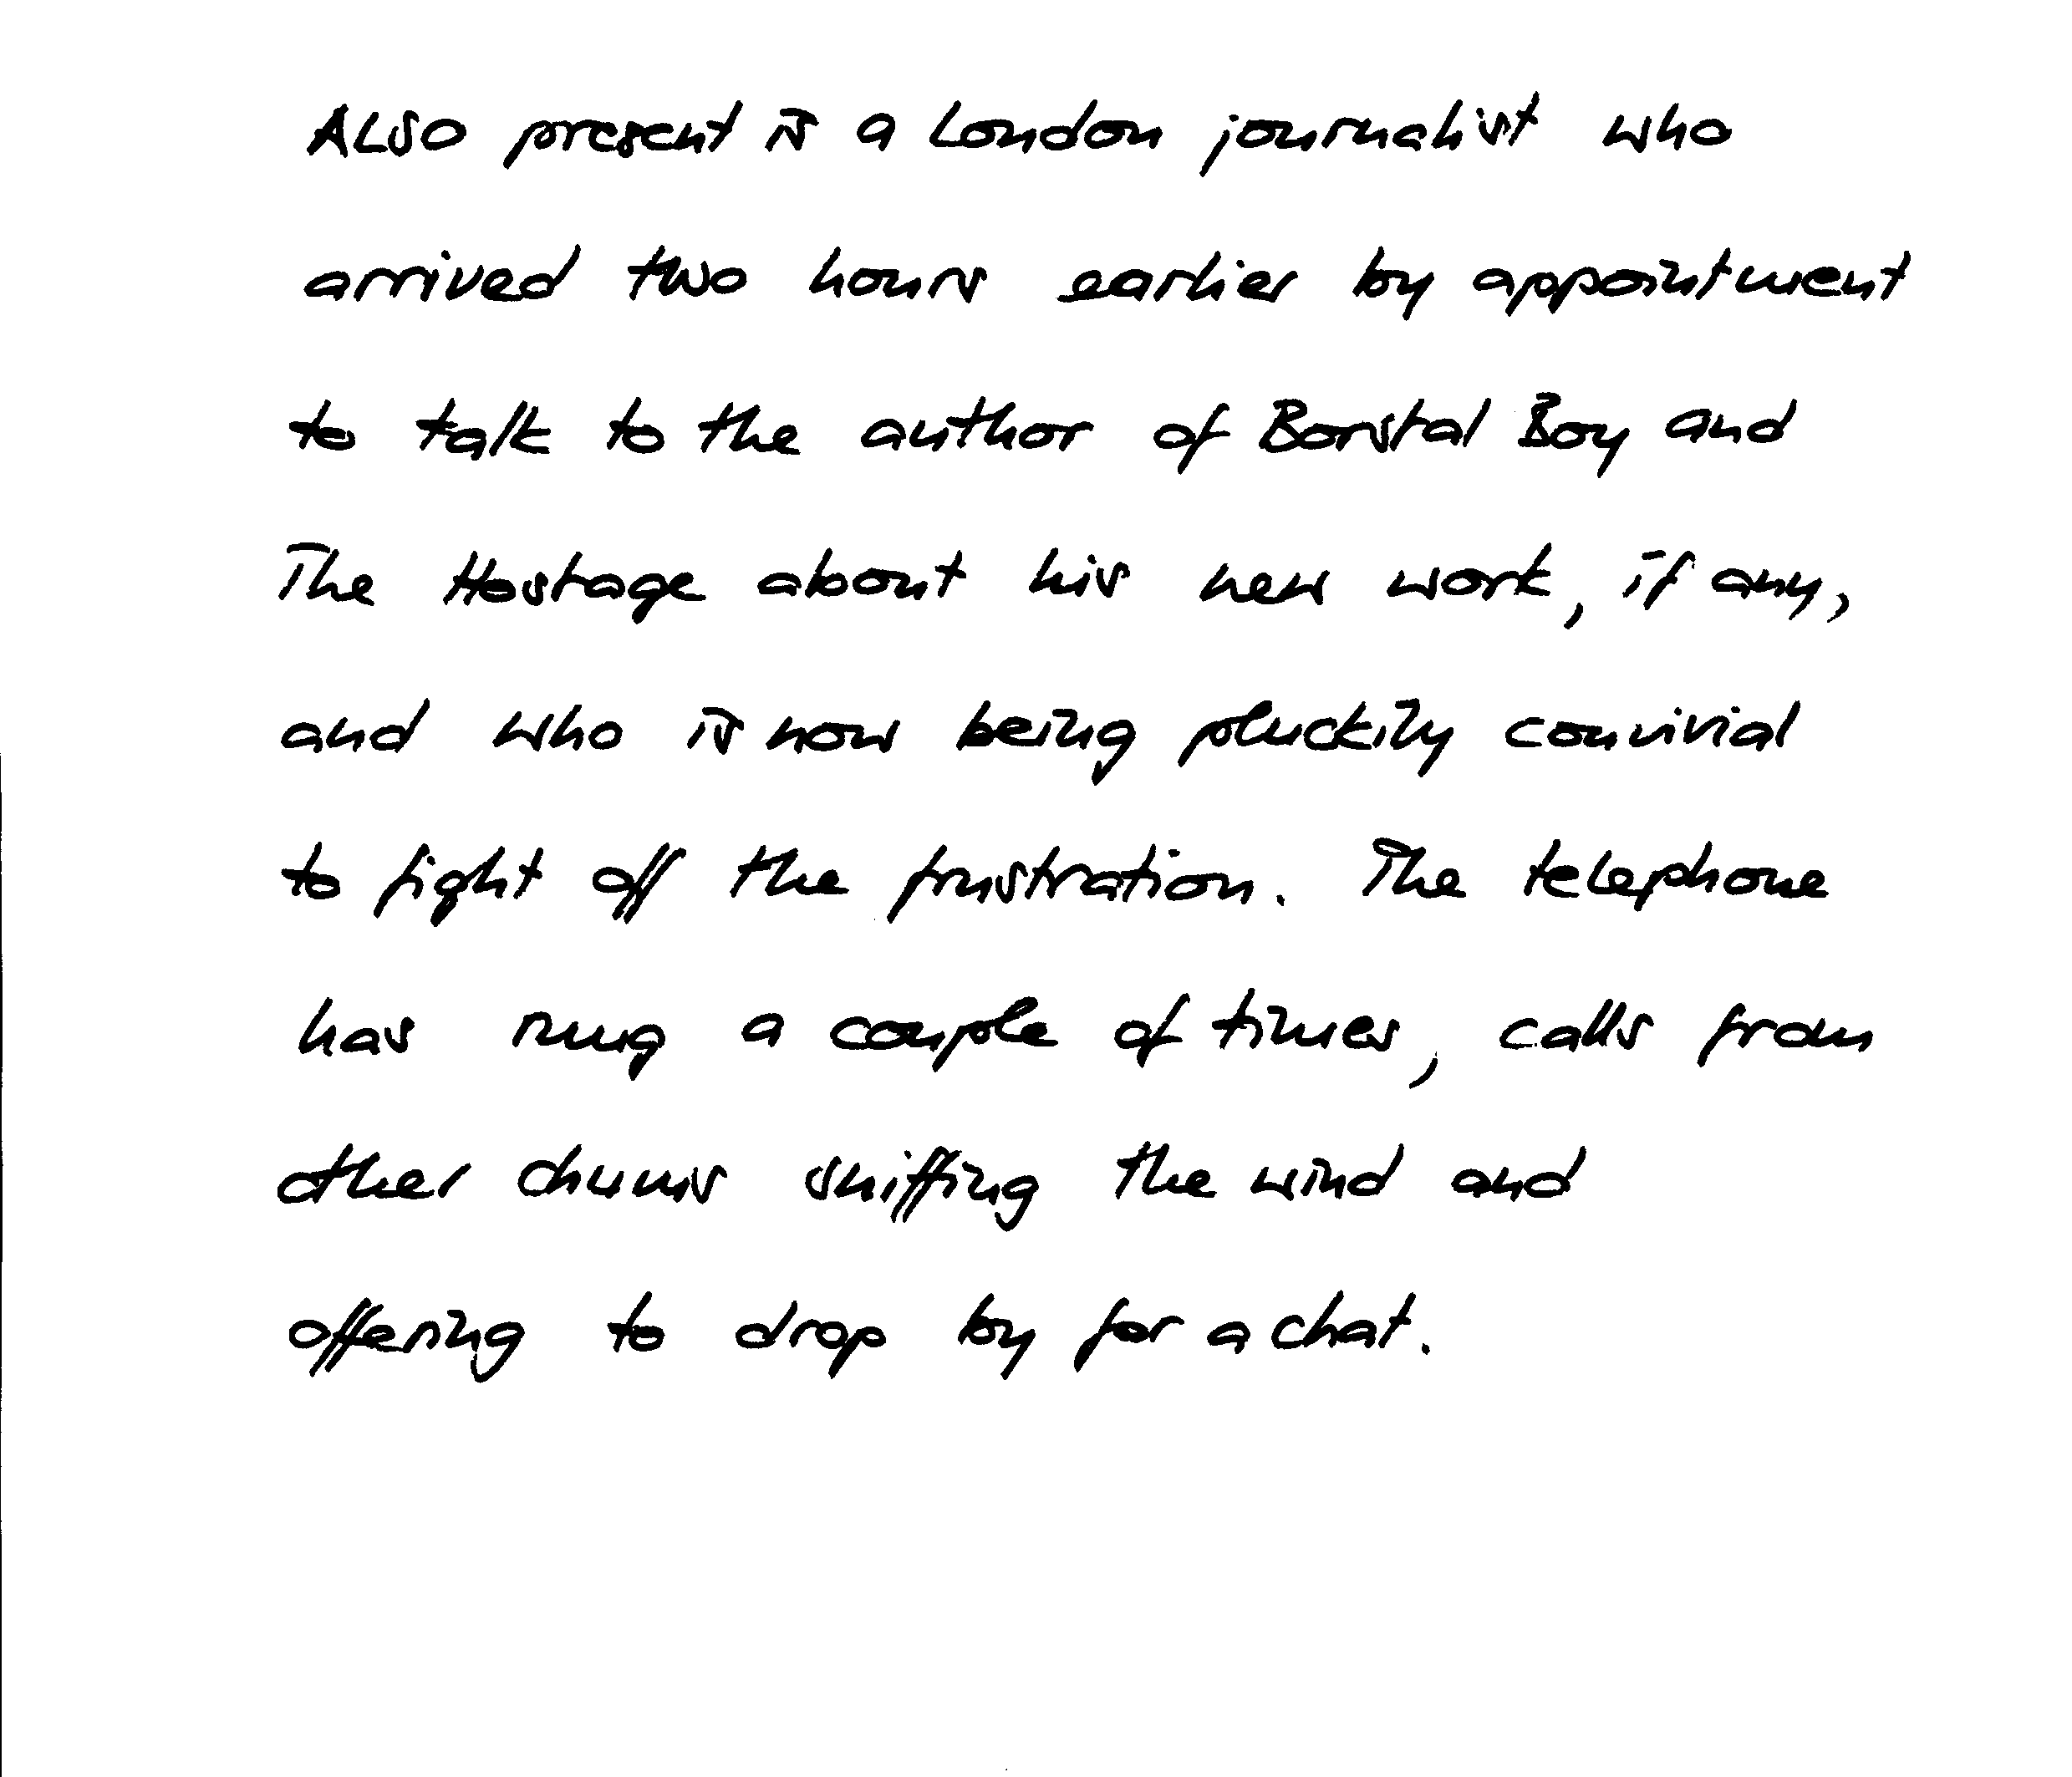 Also present is a London journalist who
arrived two hours earlier by appointment
to talk to the author of Borstal Boy and
The Hostage about his new work, if any,
and who is now being pluckily convivial
to fight off the frustration. The telephone
has rung a couple of times, calls from
other chums sniffing the wind and
offering to drop by for a chat.